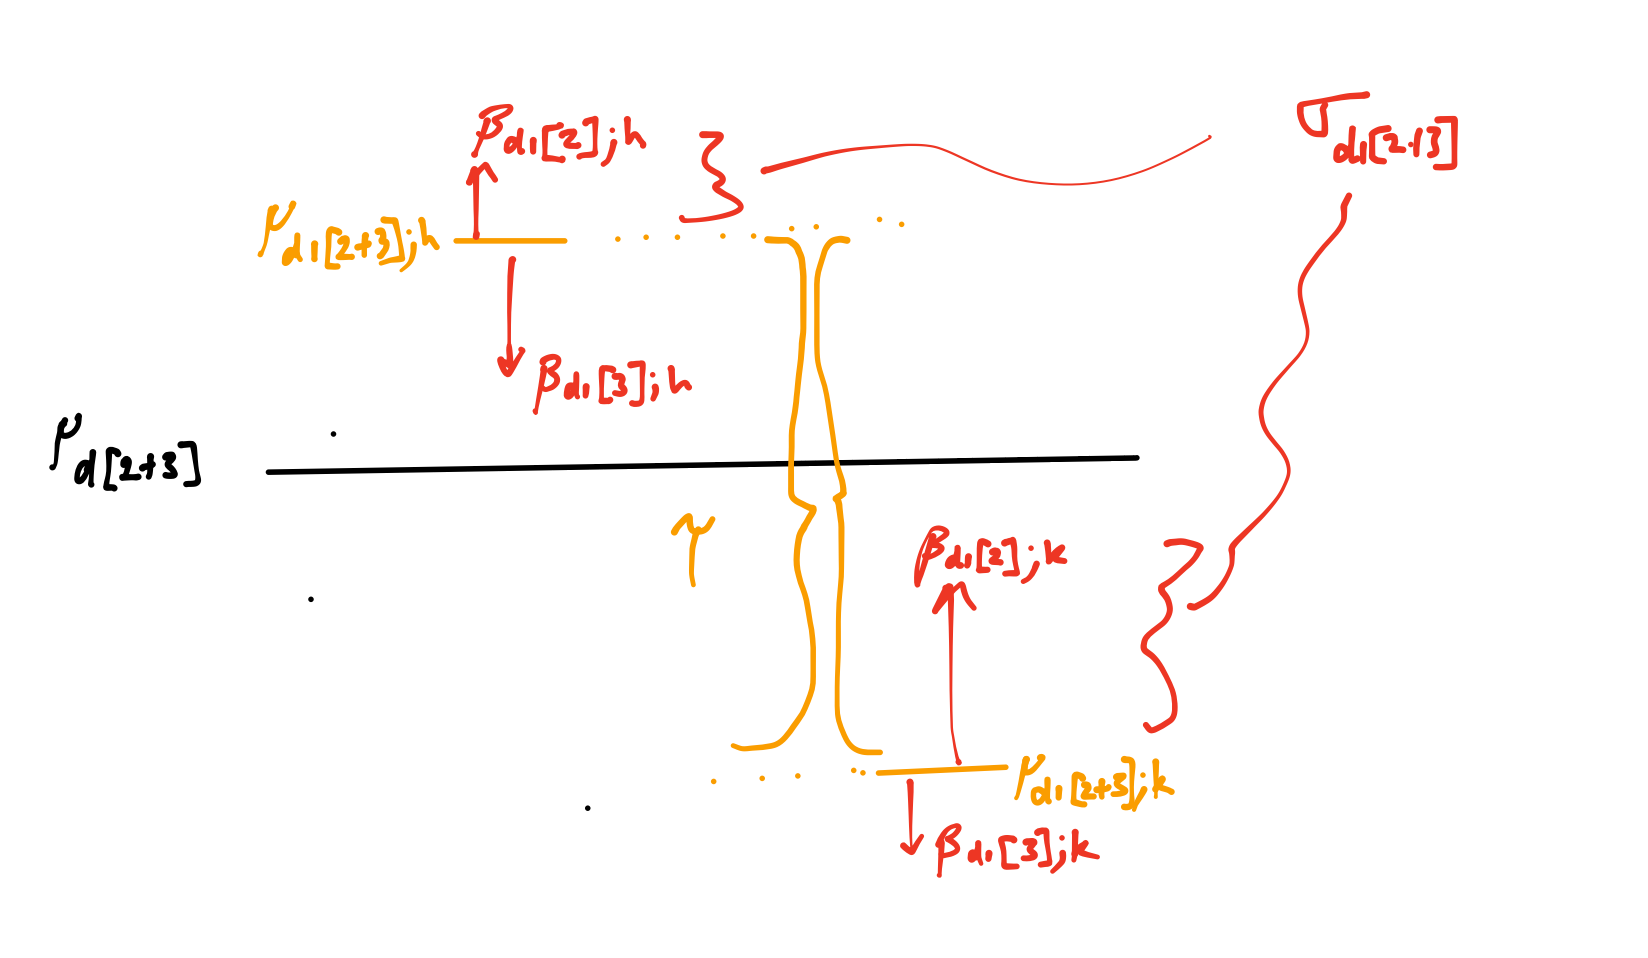 β d1[2];h
σ d1[2+3]
μ d1[2+3];h
β d1[3];h
μ d[2+3]
τ
β d1[2];k
μ d1[2+3];k
β d1[3];k